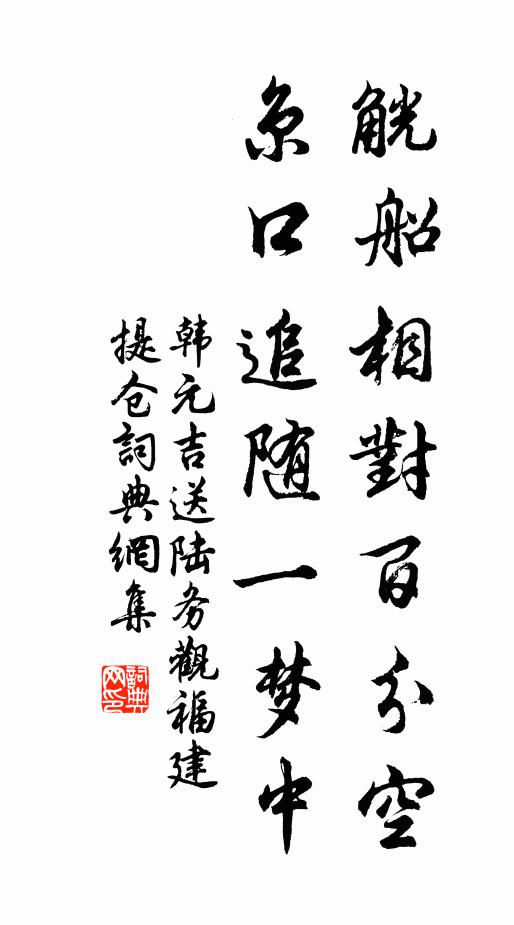 觥船相對百分空
京口追随一梦中
韩元吉送陆务觀福建
提仓詞典網集
詞典
网印